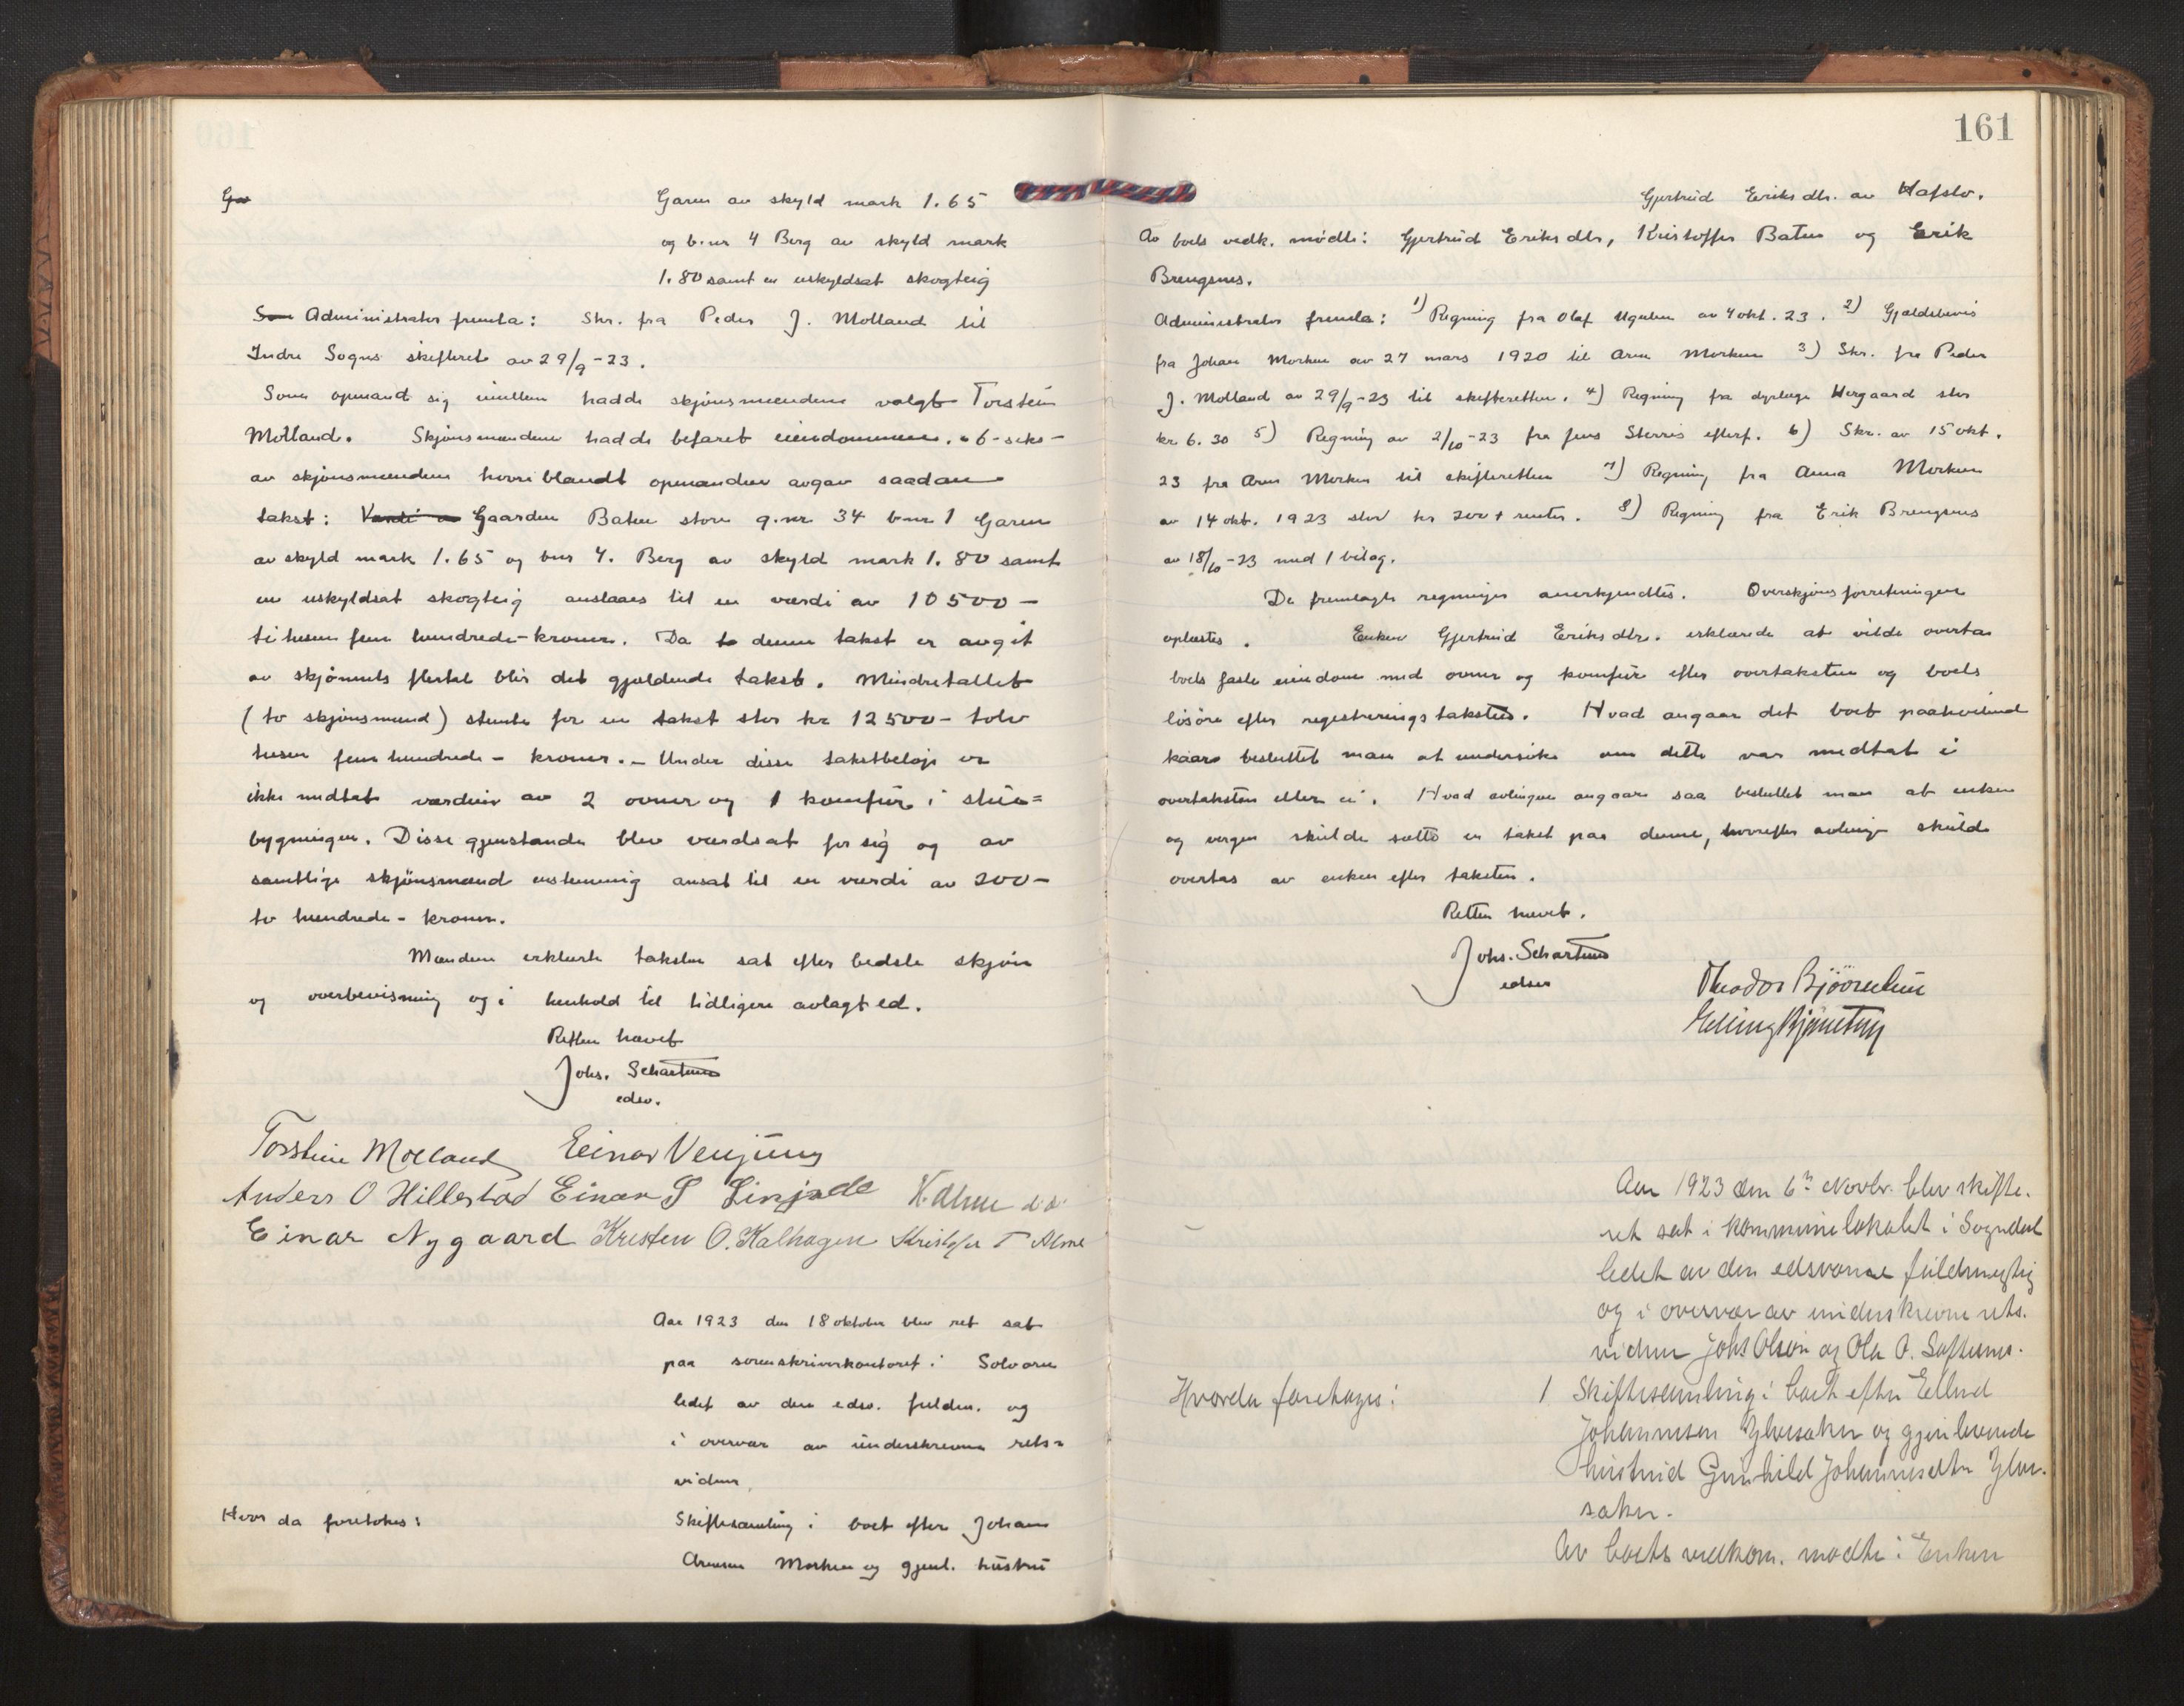 Garen av skyld mark 1.65
og b.nr 4 Berg av skyld mark
1.80 samt en uskyldsat skogteig
Administrator fremla: Skr. fra Peder J. Molland til
Indre Sogns skifteret av 29/9-23.
Som opmand sig imellem hadde skjønsmændene valgt Torstein
Molland. Skjønsmændene hadde befaret eiendommen. 6-seks-
av skjønsmændene hvoriblandt opmanden avgav saadan
takst: Gaarden Baten store g.nr 34 b.nr 1 Garen
av skyld mark 1.65 og bnr 4. Berg av skyld mark 1.80 samt
en uskyldsat skogteig anslaaes til en værdi av 10500-
titusen fem hundrede-kroner. Da denne takst er avgit
av skjønnets flertal blir det gjældende takst. Mindretallet
(to skjønsmænd) stemte for en takst stor kr 12500- tolv
tusen fem hundrede- kroner.- Under disse takstbeløp er
ikke medtat værdien av 2 ovner og 1 komfür i stüe=
bygningen. Disse gjenstande blev værdsat for sig og av
samtlige skjønsmænd enstemmig ansat til en værdi av 200-
to hundrede- kroner.
Mændene erklærte taksten sat efter bedste skjøn
og overbevisning og i henhold til tidligere avlagt ed.
Retten hævet
Johs. Schartum
edsv.
Torstein Molland Einar Venjum
Anders O Hillestad Einar S Linjade K. Alme
Einar Nygaard Kristen O. Kalhagen Kristofer T Alme
Aar 1923 den 18 oktober blev ret sat
paa sorenskriverkontoret i Solvorn
ledet av den edsv. fuldm. og
i overvær av ünderskrevne rets=
vidner.
Hvor da foretokes:
Skiftesamling i boet efter Johan
Arnesen Morken og gjenl. hüstrü
161
Gjertrüd Eriksdtr. av Hafslo.
Av boets vedk. mødte: Gjertrüd Eriksdtr, Kristoffer Baten og Erik
Brengsnes.
Administrator fremla: 1) Regning fra Olaf Ugulen av 4 okt. 23. 2) Gjældsbevis
fra Johan Morken av 27 mars 1920 til Arne Morken 3) Skr. fra Peder
J. Molland av 29/9-23 til skifteretten. 4) Regning fra dyrlæge Hergaard stor
kr 6.30 5) Regning av 2/10-23 fra Jens Sterris efterf. 6) Skr. av 15 okt.
23 fra Arne Morken til skifteretten 7) Regning fra Anna Morken
av 14 okt. 1923 stor kr 200 + renter. 8) Regning fra Erik Brengsnes
av 18/10-23 med 1 bilag.
De fremlagte regninger anerkjendtes. Overskjønsforretningen
oplæstes. Enken Gjertrüd Eriksdtr. erklærede at vilde overta
boets faste eiendom med ovner og komfür efter overtaksten og boets
løsøre efter registreringstaksten. Hvad angaar det boet paahvilende
kaar besluttet man at undersøke om dette var medtat i
overtaksten eller ei. Hvad avlingen angaar saa besluttet man at enken
og vergen skülde sætte en takst paa denne, hvorefter avlingen skulde
overtas av enken efter taksten.
Retten hævet.
Johs. Schartum
edsv
Theodor Bjørnetun
Elling Bjørnetun
Aar 1923 den 6te Novbr. blev skifte-
ret sat i kommunelokalet i Sogndal
ledet av den edsvorne fuldmegtig
og i overvær av underskrevne rets-
vidner Johs Olsen og Ola O. Loftesnes.
Hvorda foretoges:
1 Skiftesamling i boet efter Ellend
Johannesen Ylvesaker og gjenlevende
hustrud Gunhild Johannesdtr Ylve-
saker.
Av boets vedkom. mødte: Enken